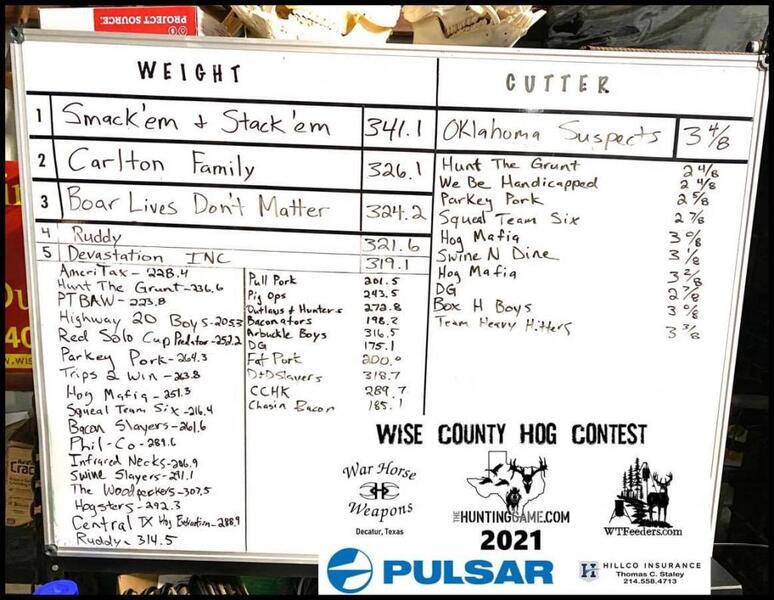 PROJECT SOURCE.
WEIGHT
1 Smack'em & Stack'em 341.1
2 Carlton Family 326.1
3 Boar Lives Don't Matter 324.2
4 Ruddy 321.6
5 Devastation INC 319.1
AmeriTax - 228.4
Hunt The Grunt - 236.6
PTBAW - 223.8
Highway 20 Boys - 205.3
Red Solo Cup Predator - 252.2
Parkey Pork - 264.3
Trips 2 Win - 263.8
Hog Mafia - 251.3
Squeal Team Six - 216.4
Bacon Slayers - 261.6
Phil-Co - 289.6
Infrared Necks - 206.9
Swine Slayers - 291.1
The Woodpeckers - 307.5
Hogsters - 292.3
Central TX Hog - 288.9
Ruddy - 314.5
Pull Pork 201.5
Pig Ops 243.5
Outlaws & Hunters 272.8
Baconators 198.2
Arbuckle Boys 316.5
DG 175.1
Fat Pork 200.0
D+D Slayers 318.7
CCHK 289.7
Chasin Bacon 185.1
CUTTER
Oklahoma Suspects 3 4/8
Hunt The Grunt 2 4/8
We Be Handicapped 2 4/8
Parkey Pork 2 5/8
Squeal Team Six 2 7/8
Hog Mafia 3 0/8
Swine N Dine 3 1/8
Hog Mafia 3 2/8
DG 2 7/8
Box H Boys 3 0/8
Team Heavy Hitters 3 3/8
WISE COUNTY HOG CONTEST
War Horse
Weapons
Decatur, Texas
THE HUNTINGGAME.COM
WTFeeders.com
2021
PULSAR
HILLCO INSURANCE
Thomas C. Staley
214.558.4713